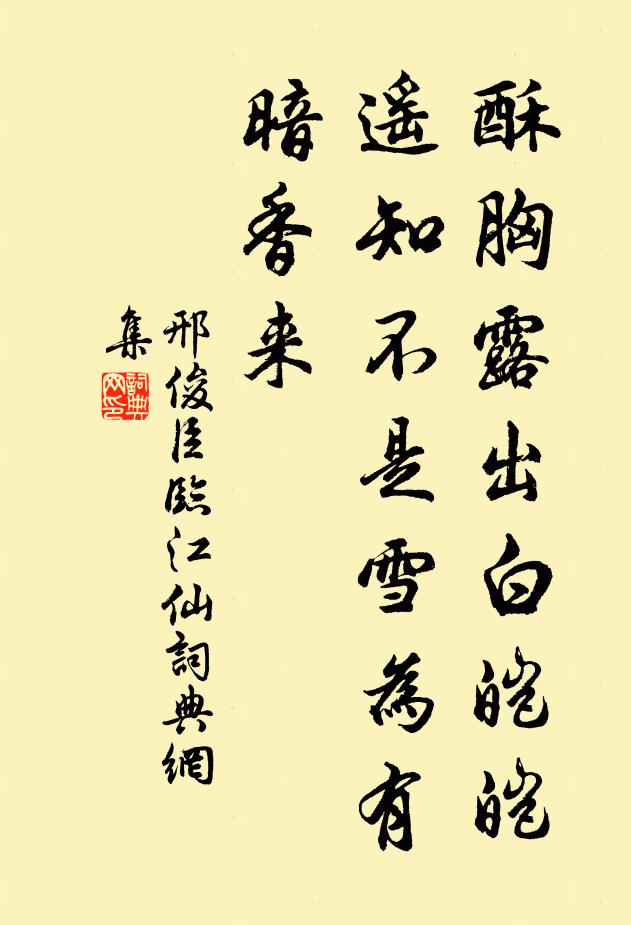 酥胸露出白皑皑
遥知不是雪為有
暗香来
邢俊臣臨江仙詞典網
集
詞典網印